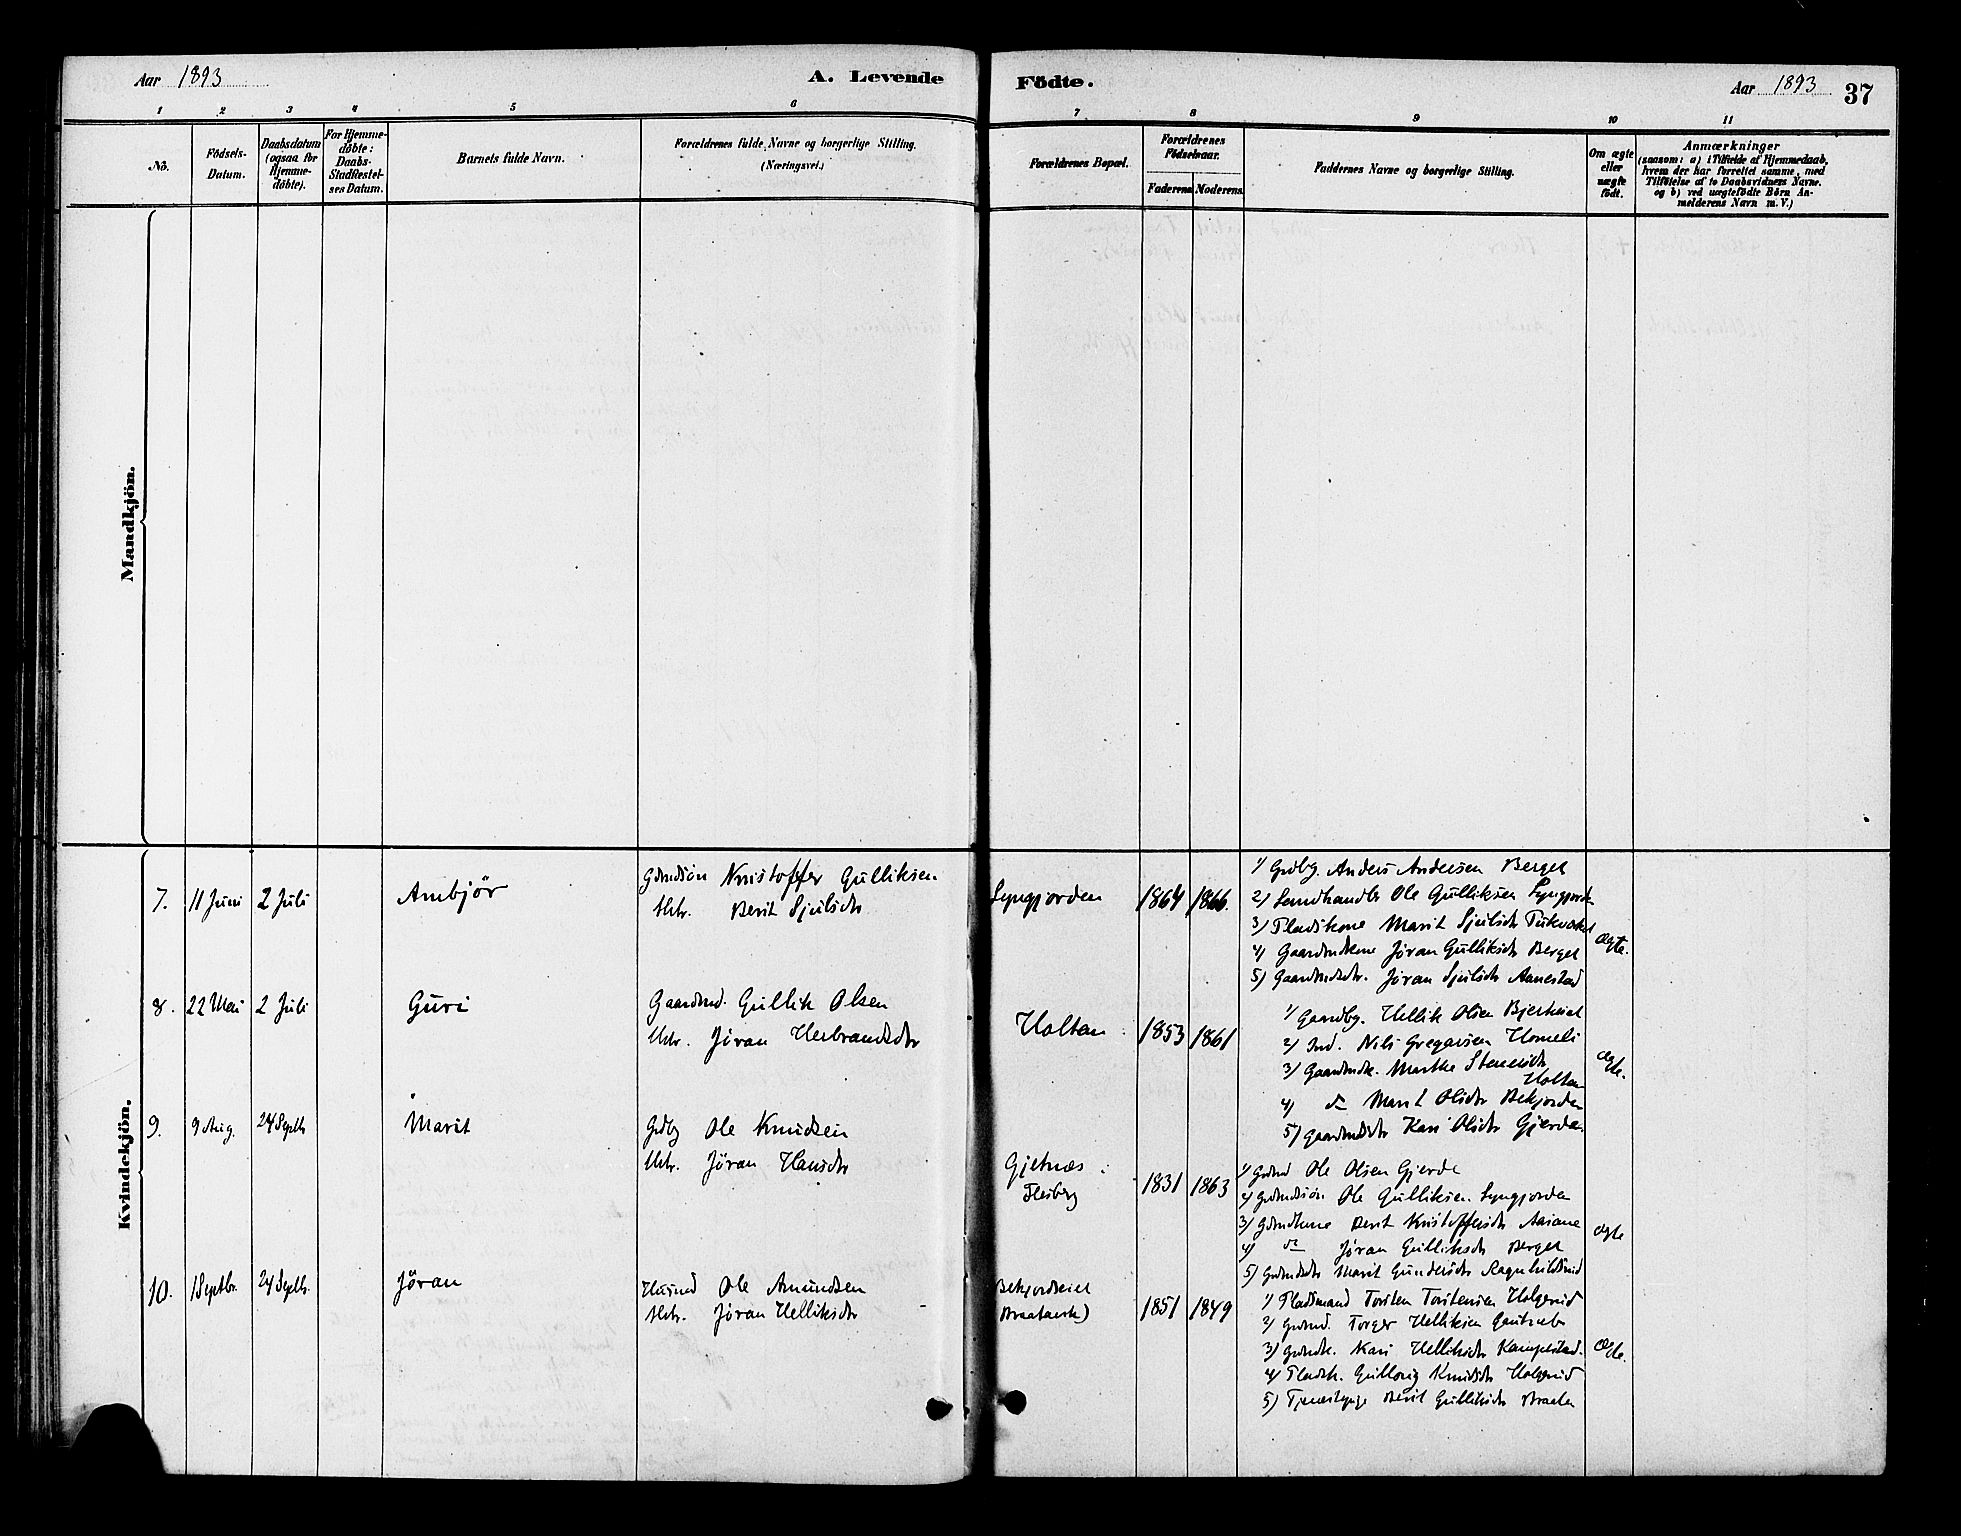 Aar 1893
A. Levende
Födte.
Aar 1893
37
1 2 3 4 5 6 7 8 9 10 11
No.
Födsels-
Datum.
Daabsdatum
(ogsaa for
Hjemme-
døbte).
For Hjemme-
døbte:
Daabs-
Stadfæstel-
ses Datum.
Barnets fulde Navn.
Forældrenes fulde Navne og borgerlige Stilling.
(Næringsvei.)
Forældrenes Bopæl.
Forældrenes
Födselsaar.
Faderens. Moderens.
Faddernes Navne og borgerlige Stilling.
Om ægte
eller
uægte
født.
Anmærkninger
(saasom: a) i Tilfælde af Hjemmedaab,
hvem der har forrettet samme, med
Tilföielse af to Daabsvidners Navne.
og b) ved uægtefödte Börn An-
melderens Navn m. V.)
Mandkjön.
Kvindekjön.
7. 11 Juni 2 Juli
Ambjör
Gdmdsön Kristoffer Gulliksen
Hstr. Berit Sjulsdtr
Lyngjorden
1864 1866.
1) Grdbg. Anders Andersen Berget
2) Landhandler Ole Gulliksen Lyngjorden
3) Pladskone Marit Sjulsdtr
4) Gaardmdkone Jöran Gulliksdtr Berget
5) Gaardmdsdtr. Jöran Sjulsdtr Aanestad
Ægte.
8. 22 Mai 2 Juli
Guri
Gaardmd. Gullik Olsen
Hstr. Jöran Herbrandsdtr
Holtan
1853 1861
1) Gaardbg. Hellik Olsen
2) Ind. Nils Gregarsen Homeli
3) Gaardmdk. Marthe Stenersdtr
Holtan
4) do Marit Olsdtr Bekjorden
5) Gaardmdsdtr Kari Olsdtr Gjerde.
Ægte.
9. 9 Aug. 24 Septb
Marit
Grdbg Ole Knudsen
Hstr. Jöran Hansdtr
Gjetnæs
Flesberg
1831 1863
1) Grdmd Ole Olsen Gjerde
2) Grdmdssön Ole Gulliksen Lyngjorden
3) Gdmdkone Berit Kristoffersdtr Aasane
4) do Jöran Gulliksdtr Berget
5) Grdmdsdtr Marit Gundersdtr Ragnhildrud
Ægte
10. 1 Septbr. 24 Septb.
Jöran
Husmd Ole Amundsen
Hstr. Jöran Helliksdtr
Bekjordseiet
1851 1849
1) Pladsmand Torsten Torstensen Holgerud
2) Grdmd. Torger Helliksen
3) Grdmdk. Kari Helliksdtr Kampestad.
4) Pladsk. Gullaug Knudsdtr Holgerud
5) Tjenestepige Berit Gulliksdtr Braaten
Ægte.